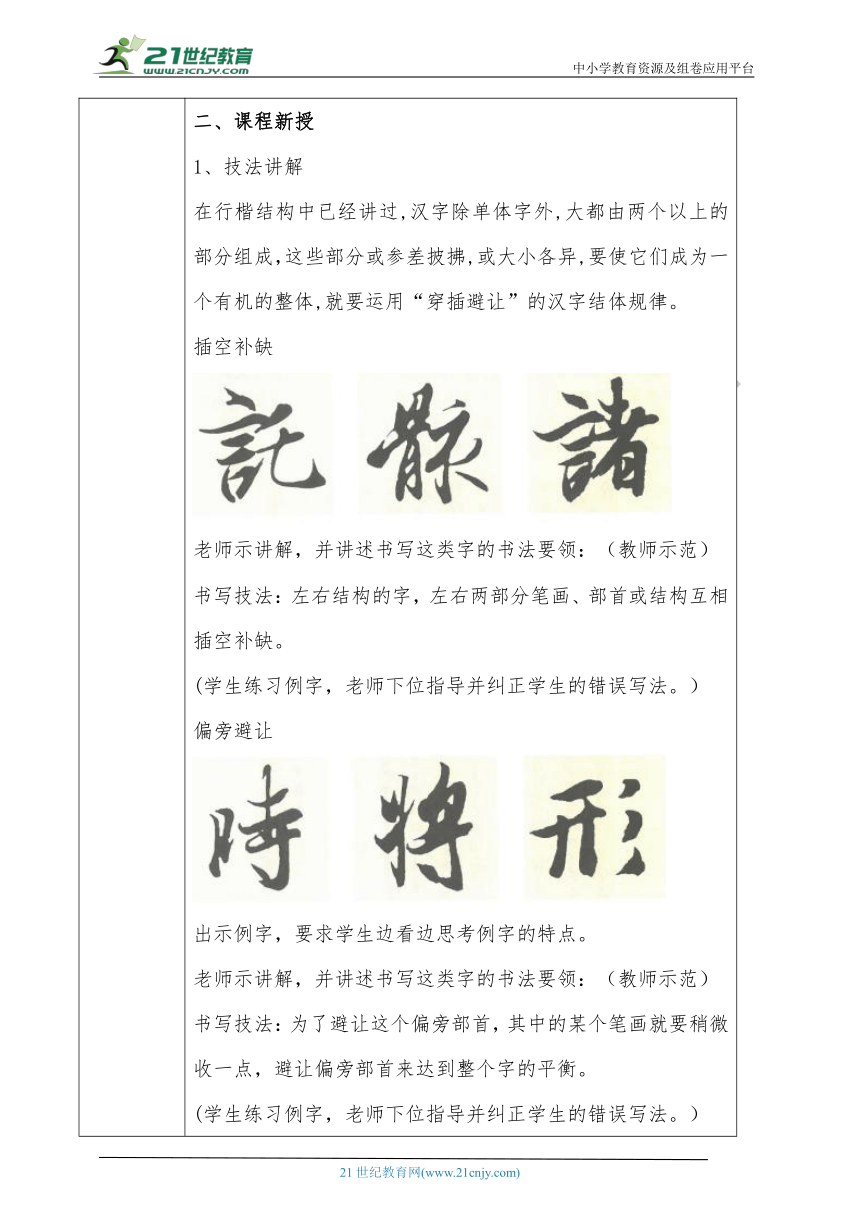 21世纪教育
www.21cnjy.com
中小学教育资源及组卷应用平台
二、课程新授
1、技法讲解
在行楷结构中已经讲过,汉字除单体字外,大都由两个以上的
部分组成,这些部分或参差披拂,或大小各异,要使它们成为一
个有机的整体,就要运用“穿插避让”的汉字结体规律。
插空补缺
託 骸 諸
老师示讲解，并讲述书写这类字的书法要领：（教师示范）
书写技法：左右结构的字，左右两部分笔画、部首或结构互相
插空补缺。
(学生练习例字，老师下位指导并纠正学生的错误写法。)
偏旁避让
時 將 形
出示例字，要求学生边看边思考例字的特点。
老师示讲解，并讲述书写这类字的书法要领：（教师示范）
书写技法：为了避让这个偏旁部首，其中的某个笔画就要稍微
收一点，避让偏旁部首来达到整个字的平衡。
(学生练习例字，老师下位指导并纠正学生的错误写法。)
21世纪教育网(www.21cnjy.com)